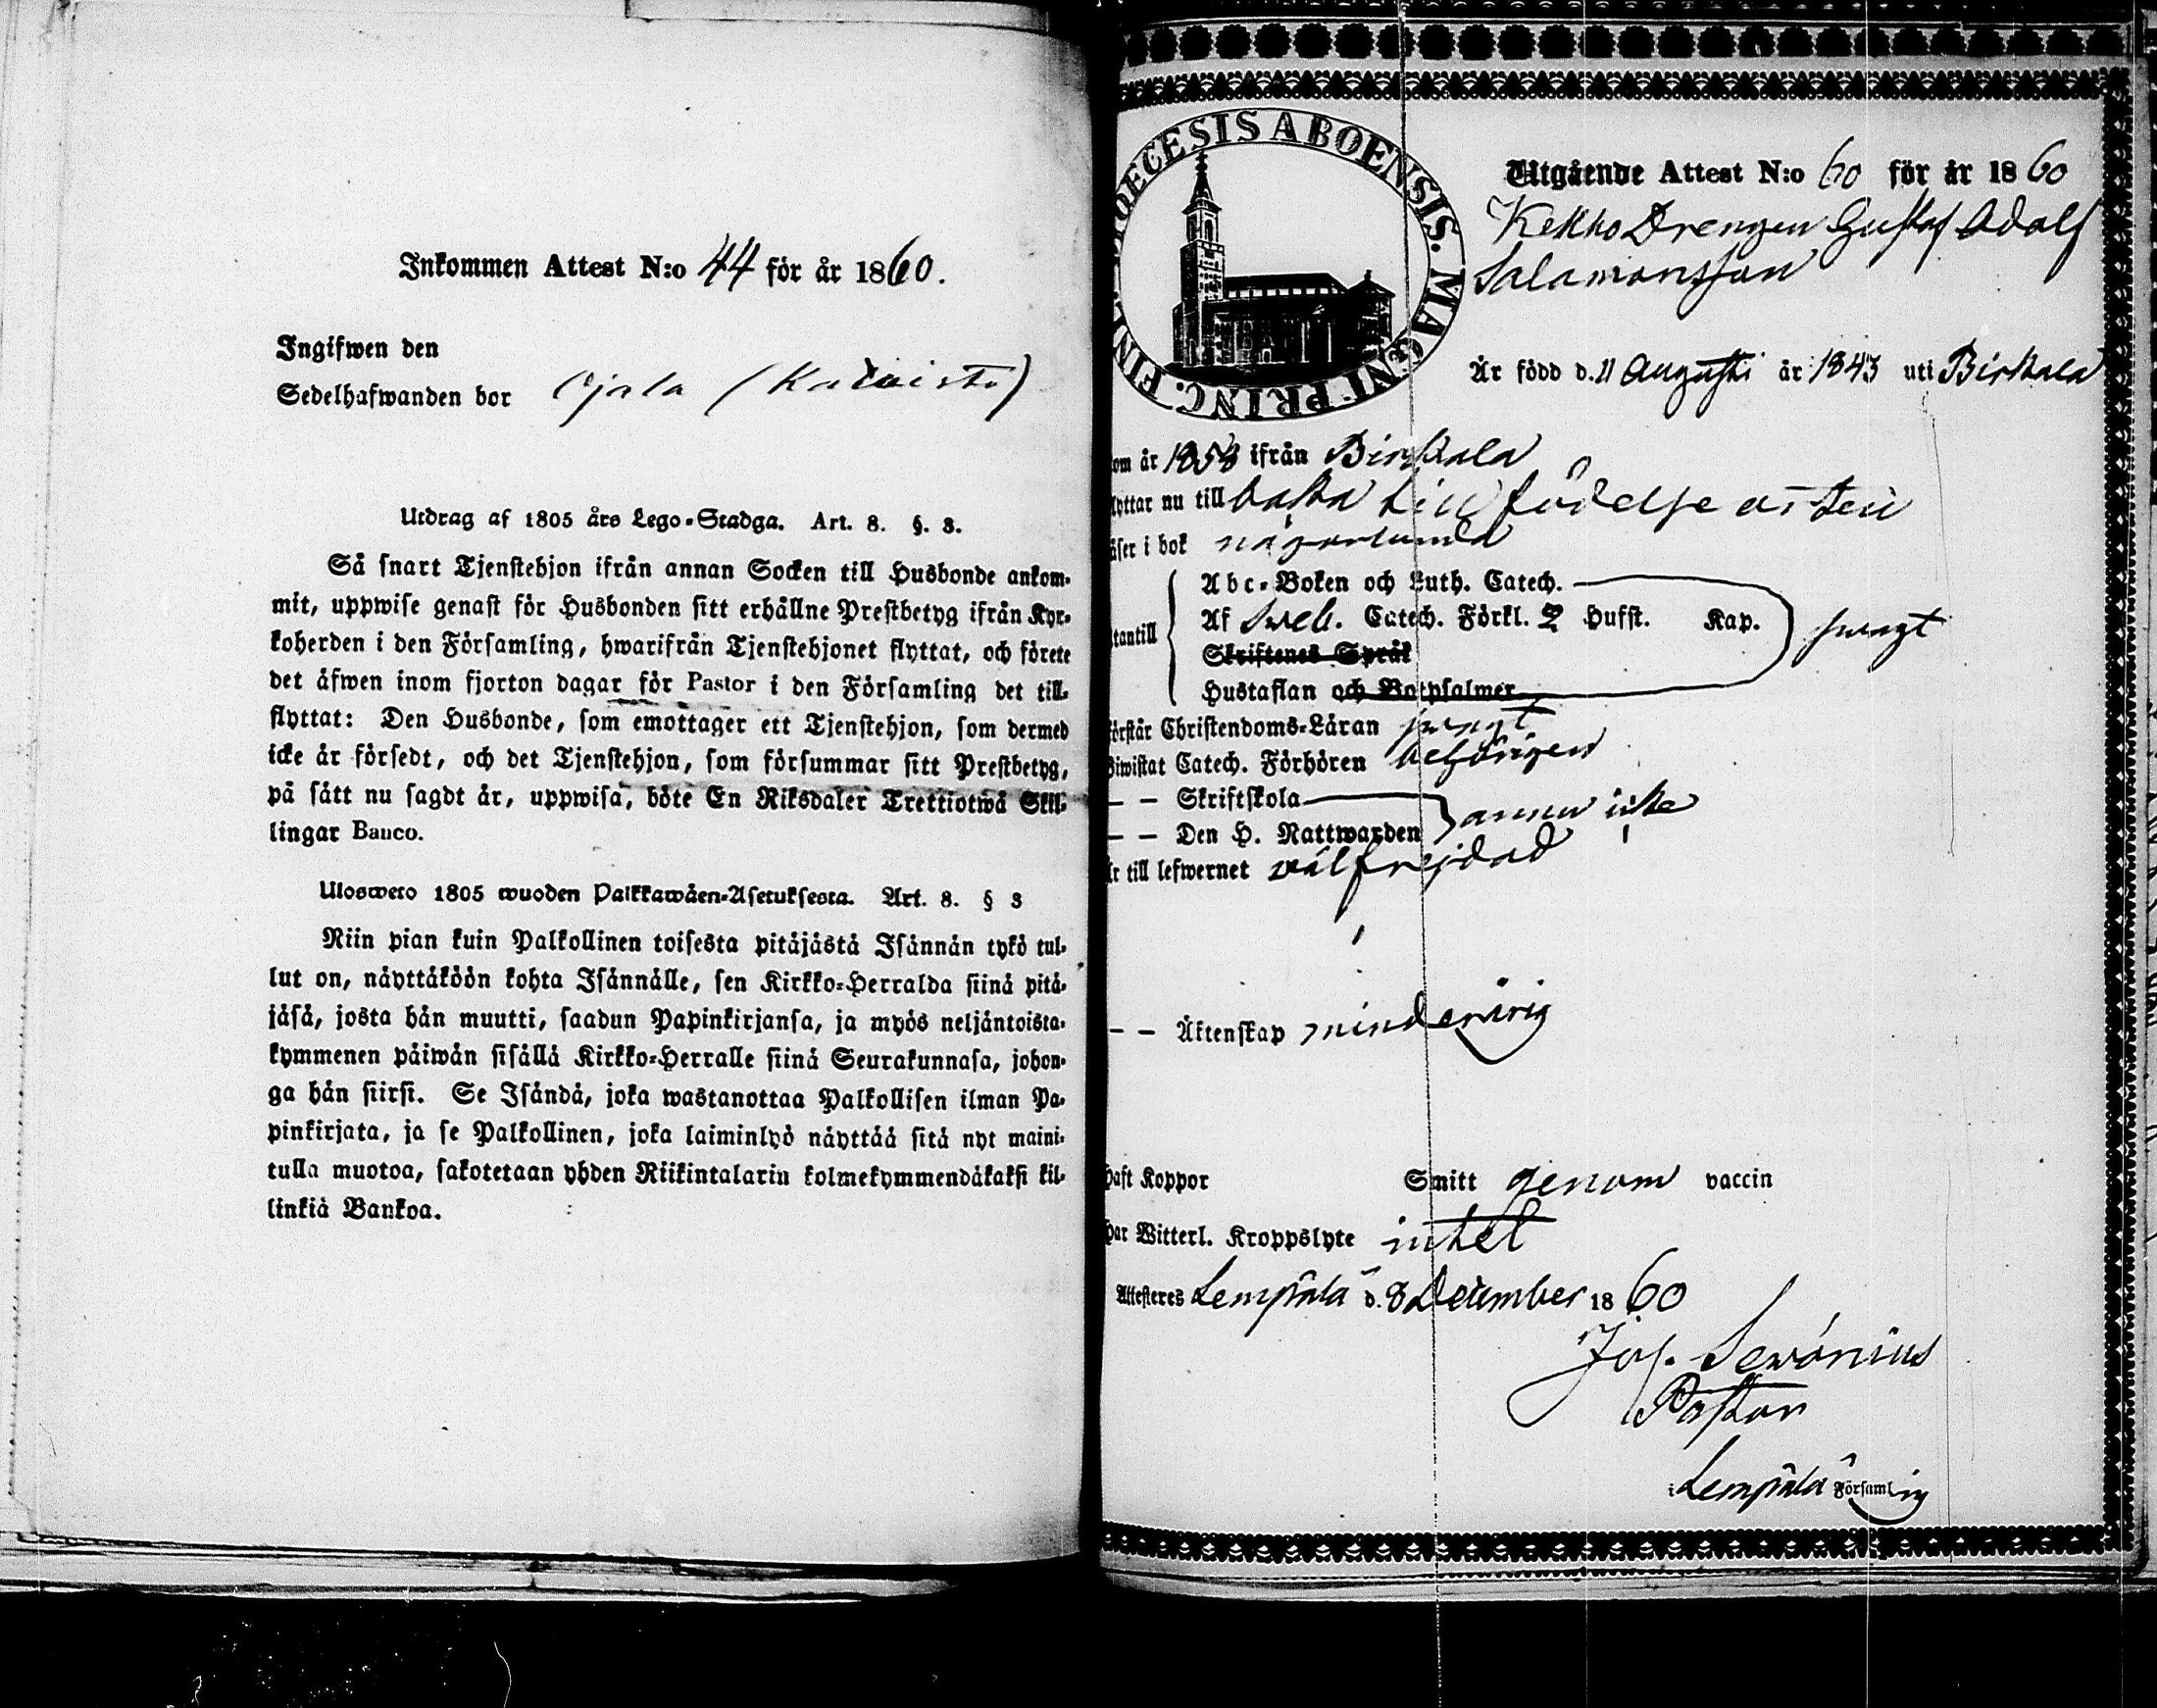 Inkommen Attest N:o 44 för år 1860.
Ingifwen den
Sedelhafwanden bor Ojala
Utdrag af 1805 års Lego-Stadga. Art. 8. §. 3.
Så snart Tjenstehjon ifrån annan Socken till Husbonde ankom-
mit, uppwise genast för Husbonden sitt erhållne Prestbetyg ifrån Kyr-
koherden i den Församling, hwarifrån Tjenstehjonet flyttat, och förete
det äfwen inom fjorton dagar för Pastor i den Församling det till-
flyttat: Den Husbonde, som emottager ett Tjenstehjon, som dermed
icke är försedt, och det Tjenstehjon, som försummar sitt Prestbetyg,
på sätt nu sagdt är, uppwisa, böte En Riksdaler Trettiotwå Skil-
lingar Banco.
Uloswero 1805 wuoden Palkkawäen-Asetuksesta. Art. 8. § 3
Niin pian kuin Palkollinen toisesta pitäjästä Isännän tykö tul-
lut on, näyttäköön kohta Isännälle, sen Kirkko-Herralda siinä pitä-
jäsä, josta hän muutti, saadun Papinkirjansa, ja myös neljäntoista-
kymmenen päiwän sisällä Kirkko-Herralle siinä Seurakunnasa, johon-
ga hän siirsi. Se Isändä, joka wastanottaa Palkollisen ilman Pa-
pinkirjata, ja se Palkollinen, joka laiminlyö näyttää sitä nyt maini-
tulla muotoa, sakotetaan yhden Riikintalarin kolmekymmendäkaksi kil-
linkiä Bankoa.
DIOECESIS ABOENSIS. MAGNI PRINC. FINL.
Utgående Attest N:o 60 för år 1860
Drengen Gustaf Adolf
Salamonsson
Är född d. 11 Augusti år 1843 uti Birkala
om år 1858 ifrån Birkala
lyttar nu till baka till födelse orten
äser i bok någorlunda
Abc-Boken och Luth. Catech.
tantill Af Sweb. Catech. Förkl. 2 Hufst. Kap. swagt
Skriftenes Språk
Hustaflan och Botpsalmer
örstår Christendoms-Läran swagt
Biwistat Catech. Förhören behörigen
— — Skriftskola
— — Den H. Nattwarden annu icke
Är till lefwernet välfrejdad
— — Äktenskap minderårig
Haft Koppor Smitt genom vaccin
Har Witterl. Kroppslyte intet
Attesteres Lempäla d. 8 December 1860
Jos. Sewónius
Pastor
i Lempäla Församling